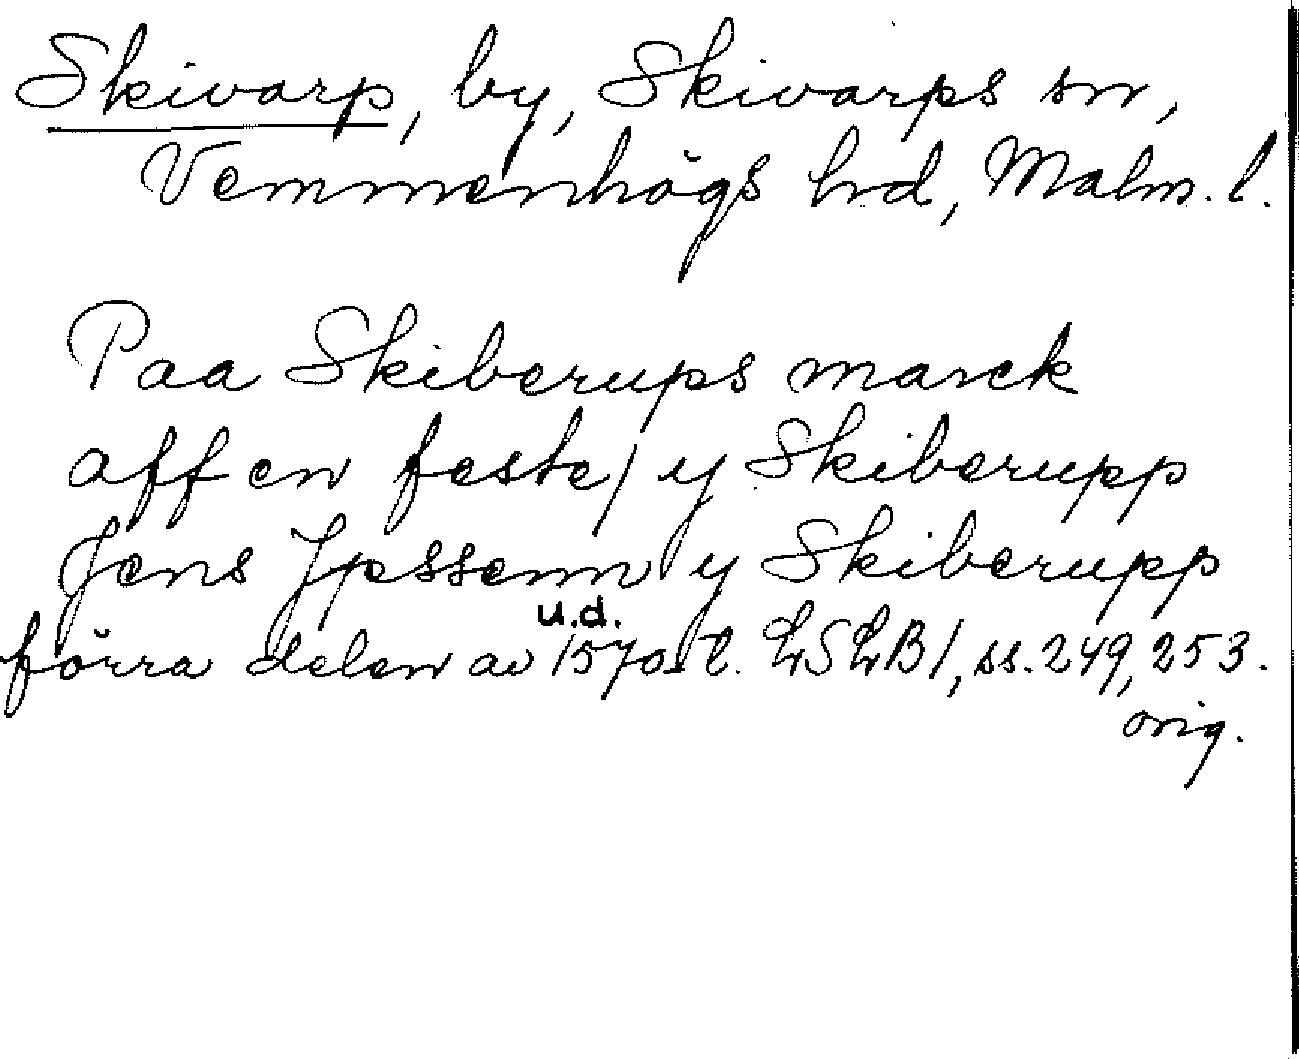 Skivarp, by, Skivarps sn,
Vemmenhögs hrd, Malm. l.
Paa Skiberups marck
aff en feste / y Skiberupp
Jens Jpssenn y Skiberupp
u.d.
förra delen av 1570-t. LSLB 1, ss. 249, 253.
orig.